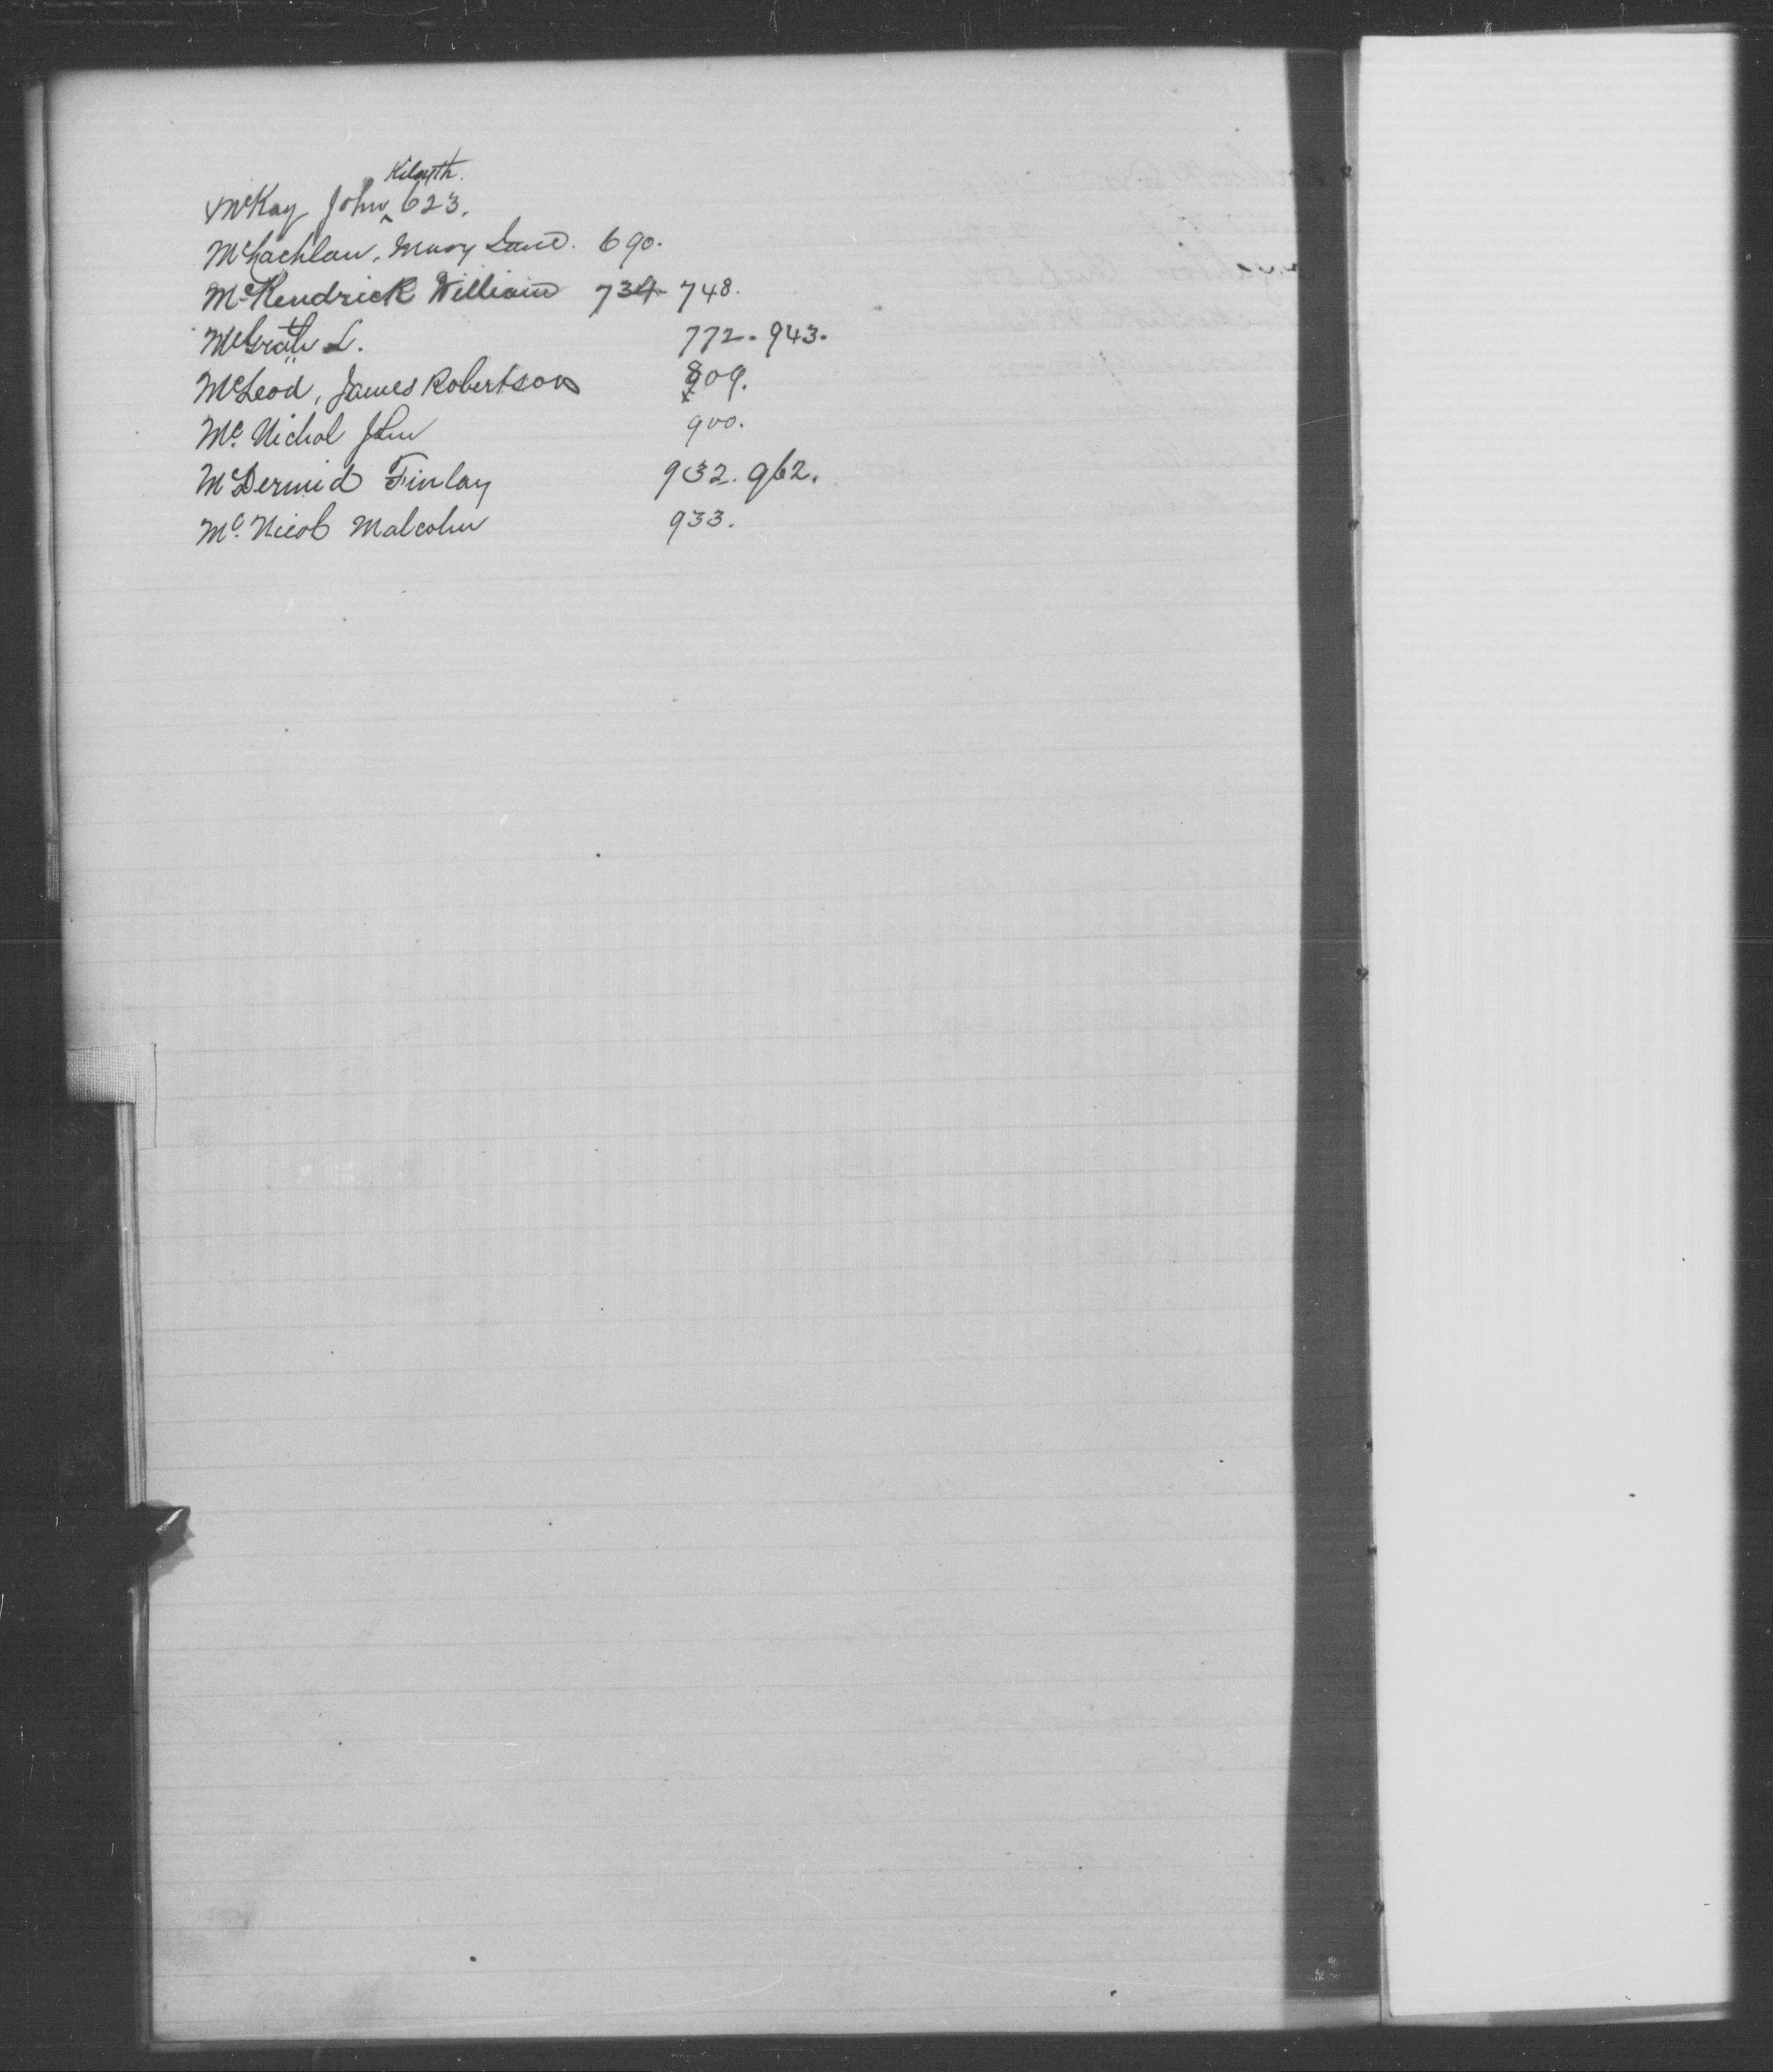 Kilsyth.
McKay John ^ 623.
McLachlan, Mary Jane. 690.
McKendrick William 734 748.
McGrath L. 772. 943.
McLeod, James Robertson 809.
Mc. Nichol John 900.
McDermid Finlay 932. 962.
Mc. Nicol Malcolm 933.